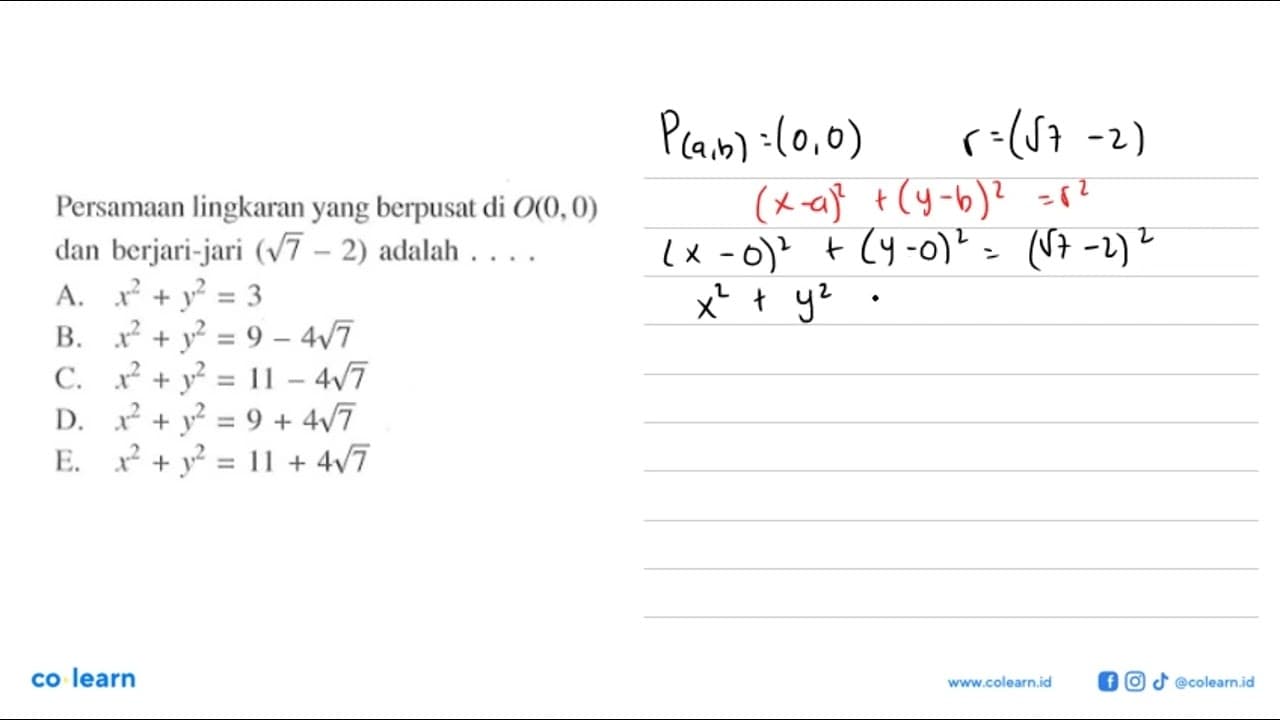 Persamaan lingkaran yang berpusat di O(0, 0)
dan berjari-jari (√7 – 2) adalah . . . .
A. x² + y² = 3
B. x² + y² = 9 – 4√7
C. x² + y² = 11 – 4√7
D. x² + y² = 9 + 4√7
E. x² + y² = 11 + 4√7
P(a,b) = (0,0) r = (√7 - 2)
(x-a)² + (y-b)² = r²
(x - 0)² + (y - 0)² = (√7 - 2)²
x² + y²
co·learn
www.colearn.id
@colearn.id